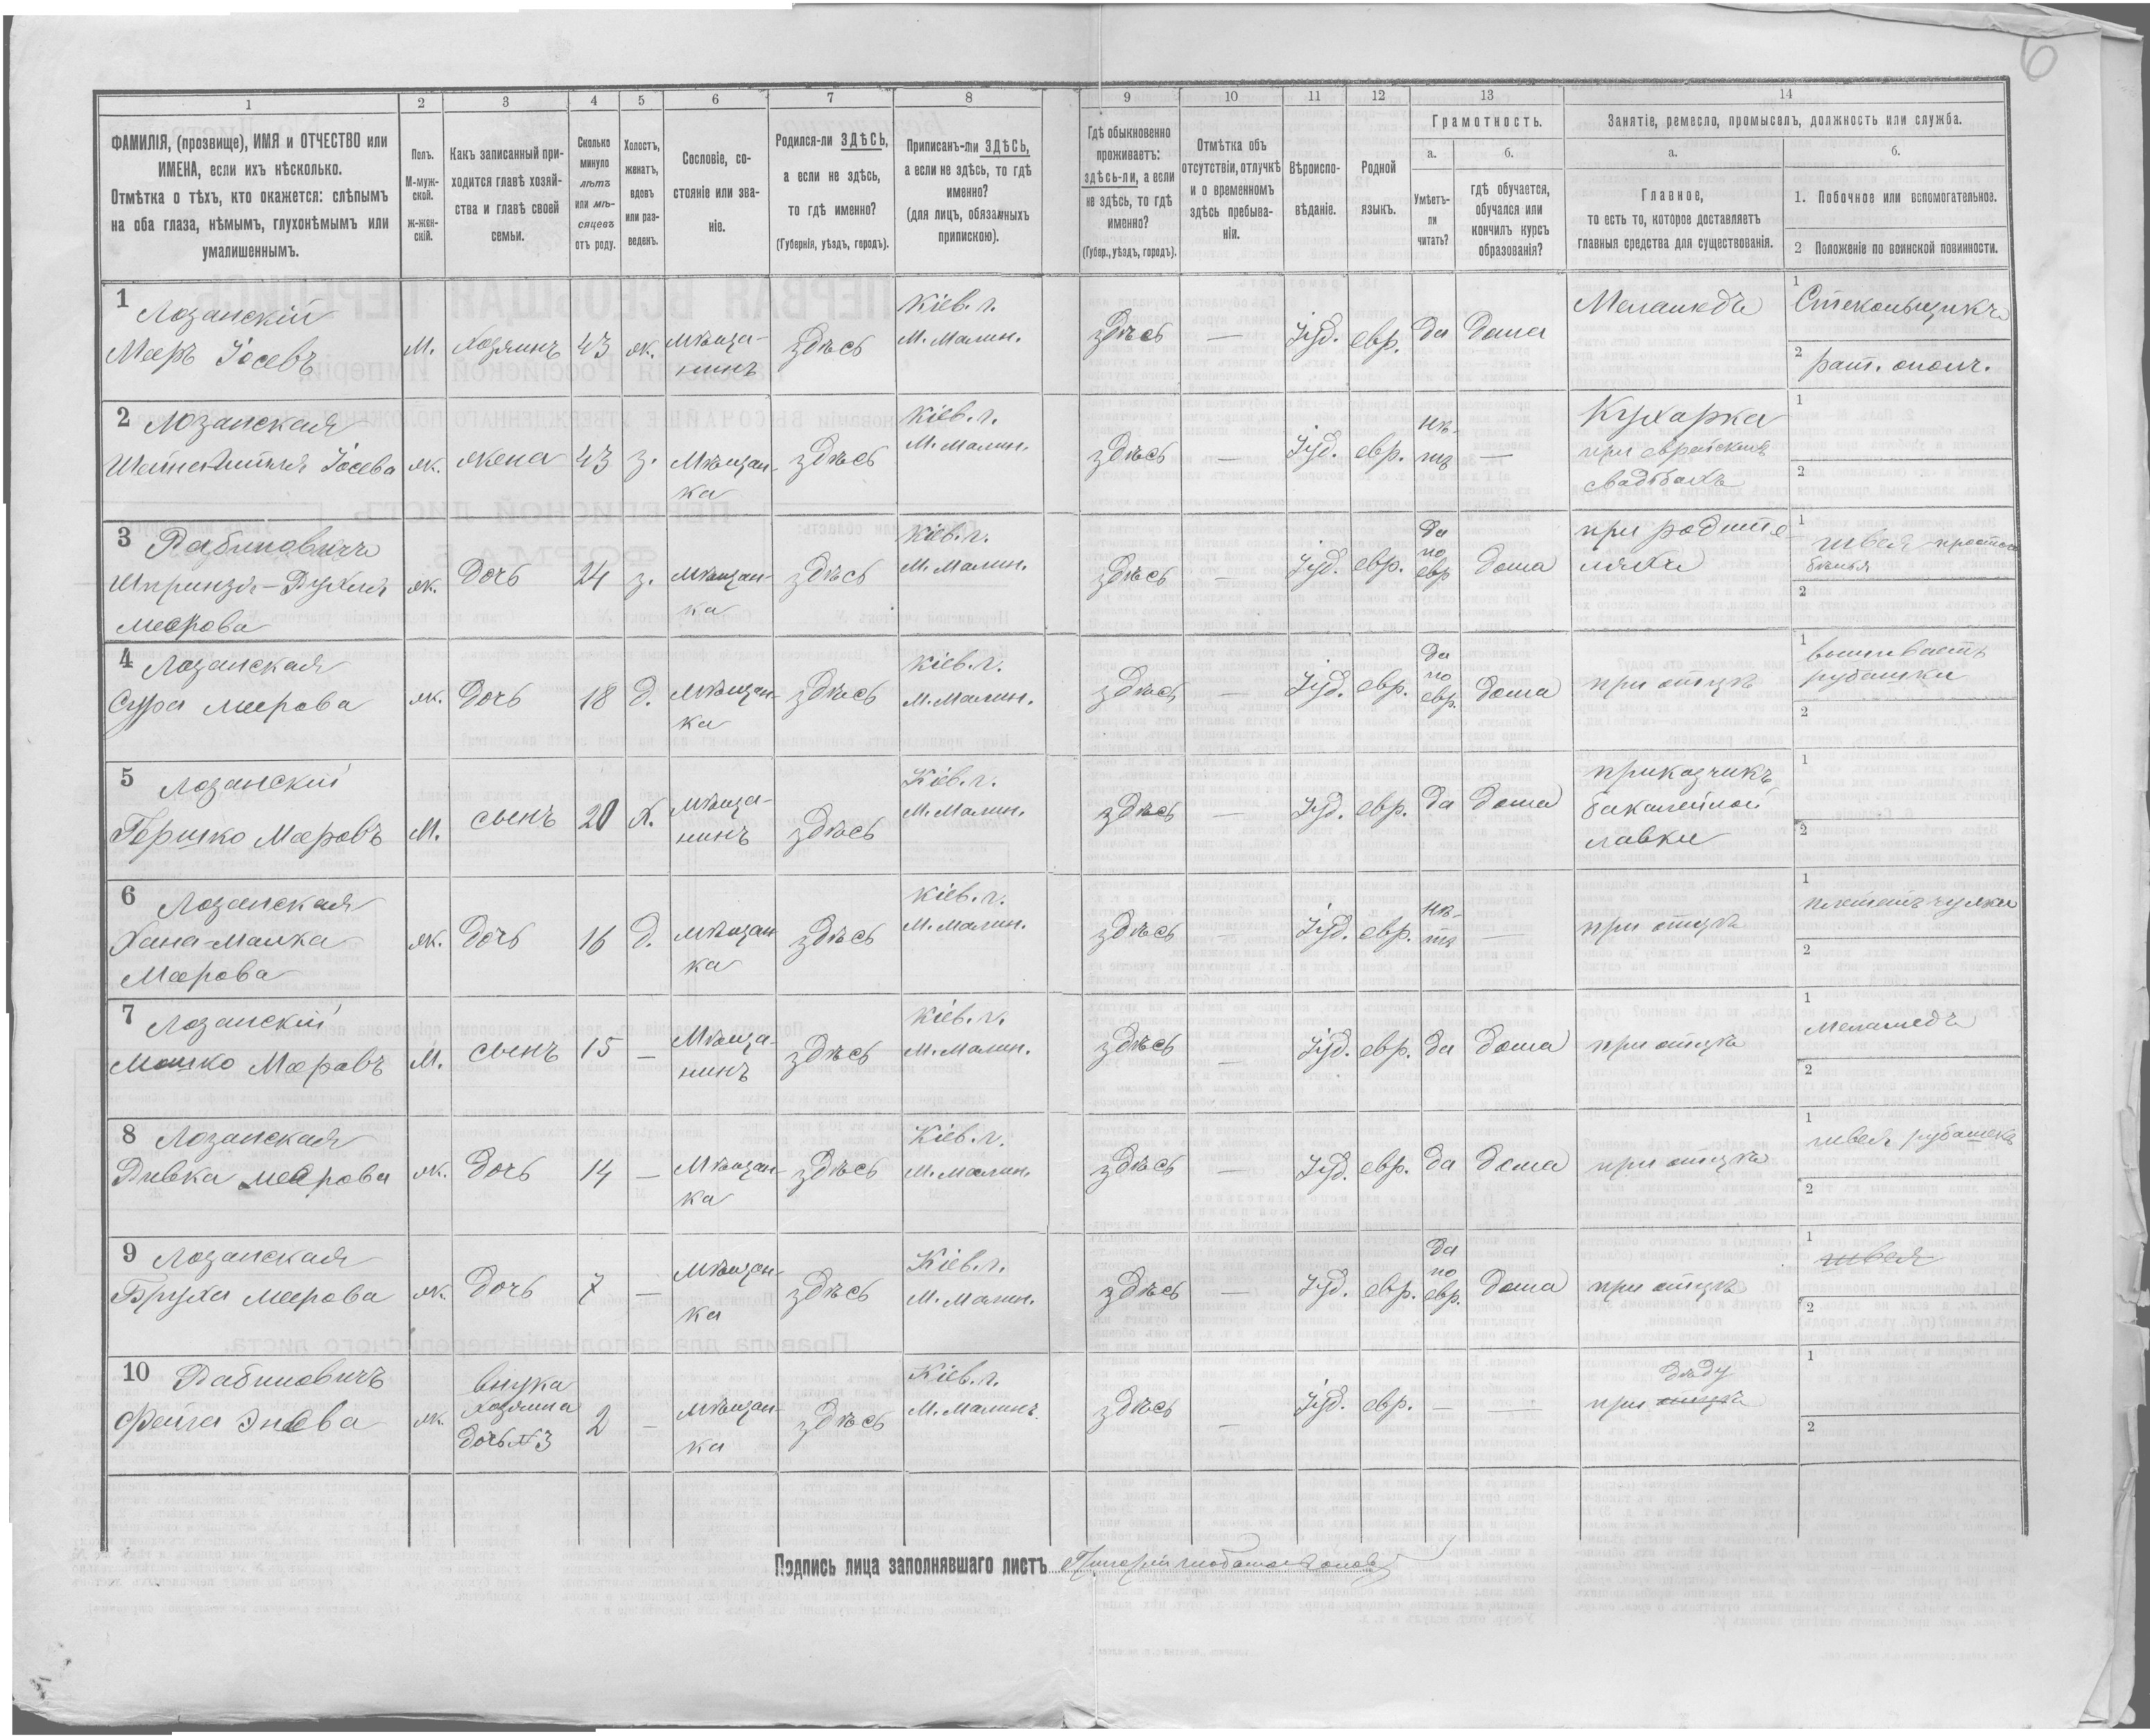 6
1 2 3 4 5 6 7 8 9 10 11 12 13 14
ФАМИЛІЯ, (прозвище), ИМЯ и ОТЧЕСТВО или
ИМЕНА, если ихъ нѣсколько.
Отмѣтка о тѣхъ, кто окажется: слѣпымъ
на оба глаза, нѣмымъ, глухонѣмымъ или
умалишеннымъ.
Полъ.
М-муж-
ской.
ж-жен-
скій.
Какъ записанный при-
ходится главѣ хозяй-
ства и главѣ своей
семьи.
Сколько
минуло
лѣтъ
или мѣ-
сяцевъ
отъ роду.
Холостъ,
женатъ,
вдовъ
или раз-
веденъ.
Сословіе, со-
стояніе или зва-
ніе.
Родился-ли ЗДѢСЬ,
а если не здѣсь,
то гдѣ именно?
(Губернія, уѣздъ, городъ).
Приписанъ-ли ЗДѢСЬ,
а если не здѣсь, то гдѣ
именно?
(для лицъ, обязанныхъ
припискою).
Гдѣ обыкновенно
проживаетъ:
здѣсь-ли, а если
не здѣсь, то гдѣ
именно?
(Губер., уѣздъ, городъ).
Отмѣтка объ
отсутствіи, отлучкѣ
и о временномъ
здѣсь пребыва-
ніи.
Вѣроиспо-
вѣданіе.
Родной
языкъ.
Грамотность.
а.
Умѣетъ-
ли
читать?
б.
гдѣ обучается,
обучался или
кончилъ курсъ
образованія?
Занятіе, ремесло, промыселъ, должность или служба.
а.
Главное,
то есть то, которое доставляетъ
главныя средства для существованія.
б.
1. Побочное или вспомогательное.
2 Положеніе по воинской повинности.
1 Лозанскій
Меръ Іосевъ
М. Хозяинъ 43 ж. Мѣща-
нинъ
здѣсь
Кіев. г.
М. Малин.
здѣсь — Іуд. евр. да дома
Меламедъ
1 Стекольщикъ
2 рат. ополч.
2 Лозанская
Іосева
ж. жена 43 з. Мѣщан-
ка
здѣсь
Кіев. г.
М. Малин.
здѣсь — Іуд. евр. нѣ-
тъ —
Кухарка
при еврейскихъ
свадьбахъ
1
2
3 Рабиновичъ
Шпринзя-Рухля
Меерова
ж. дочь 24 з. Мѣщан-
ка
здѣсь
Кіев. г.
М. Малин.
здѣсь — Іуд. евр. да
по
евр. дома
при родите
ляхъ
1 швея простого
бѣлья
2
4 Лозанская
Сура Меерова
ж. дочь 18 д. Мѣщан-
ка
здѣсь
Кіев. г.
М. Малин.
здѣсь — Іуд. евр. да
по
евр. дома
при отцѣ
1 вышиваетъ
рубашки
2
5 Лозанскій
Гершко Меровъ
М. сынъ 20 х. Мѣща-
нинъ
здѣсь
Кіев. г.
М. Малин.
здѣсь — Іуд. евр. да дома
приказчикъ
бакалейной
лавки
1
2
6 Лозанская
Хана-Малка
Меерова
ж. дочь 16 д. Мѣщан
ка
здѣсь
Кіев. г.
М. Малин.
здѣсь — Іуд. евр. нѣ-
тъ —
при отцѣ
1 плетатъ чулки
2
7 Лозанскій
Мошко Меровъ
М. сынъ 15 — Мѣща-
нинъ
здѣсь
Кіев. г.
М. Малин.
здѣсь — Іуд. евр. да дома
при отцѣ
1 меламедъ
2
8 Лозанская
Ривка Меерова
ж. дочь 14 — Мѣщан-
ка
здѣсь
Кіев. г.
М. Малин.
здѣсь — Іуд. евр. да дома
при отцѣ
1 швея рубашекъ
2
9 Лозанская
Бруха Меерова
ж. дочь 7 — Мѣщан-
ка
здѣсь
Кіев. г.
М. Малин.
здѣсь — Іуд. евр. да
по
евр. дома
при отцѣ
1 швея
2
10 Рабиновичъ
Фейга
ж. внука
хозяина
дочь №3
2 — Мѣщан-
ка
здѣсь
Кіев. г.
М. Малинъ.
здѣсь — Іуд. евр. — —
дѣду
при отцѣ
1
2
Подпись лица заполнявшаго листъ